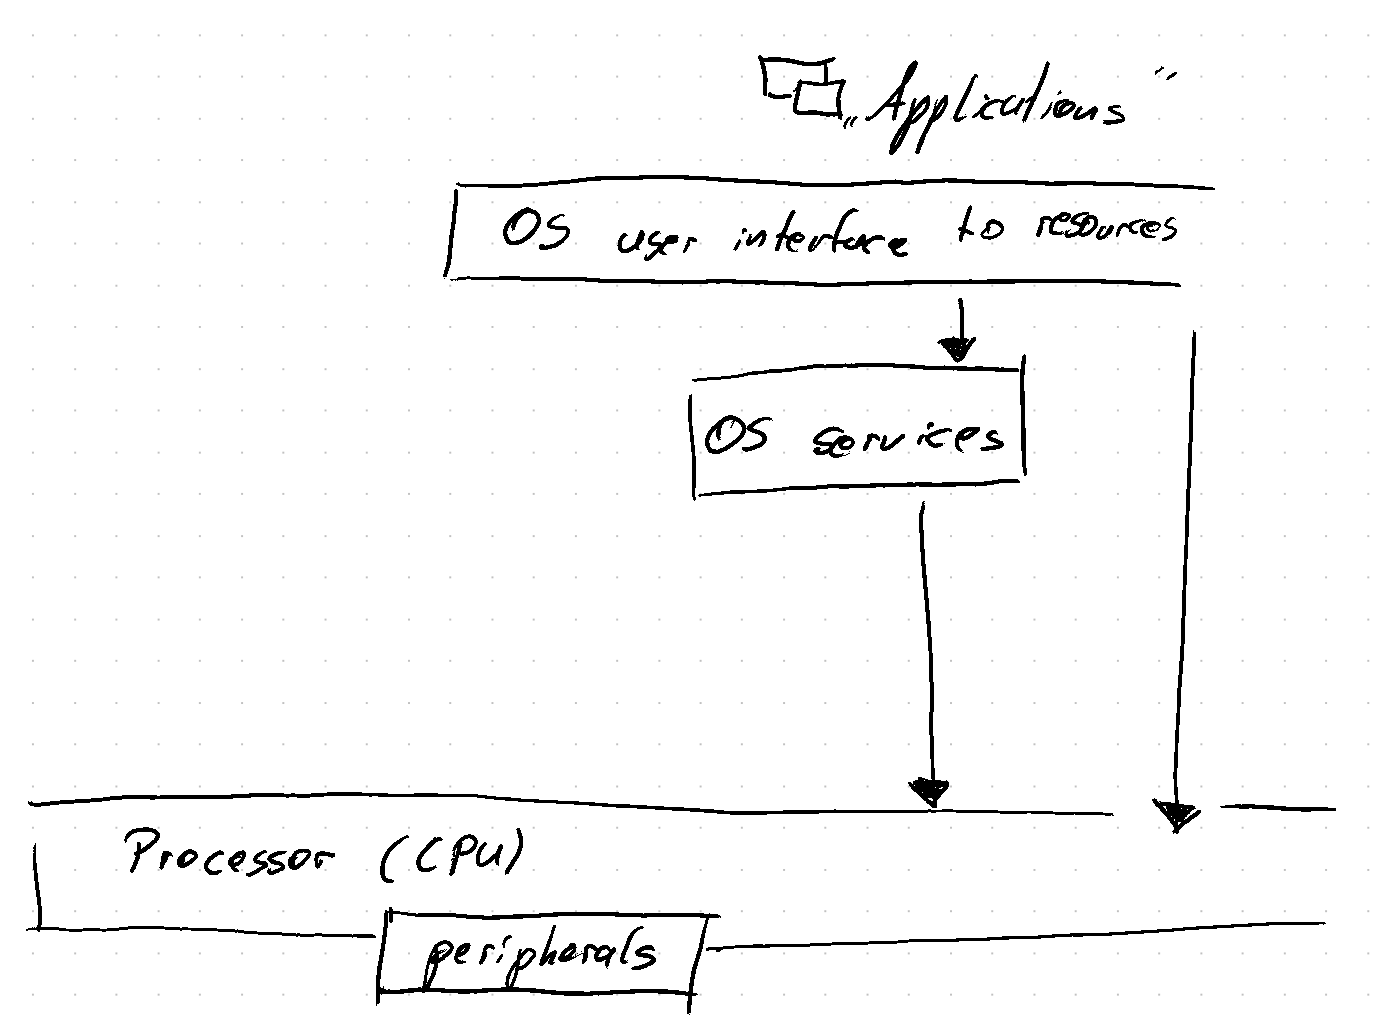 „Applications“
OS user interface to resources
OS services
Processor (CPU)
peripherals